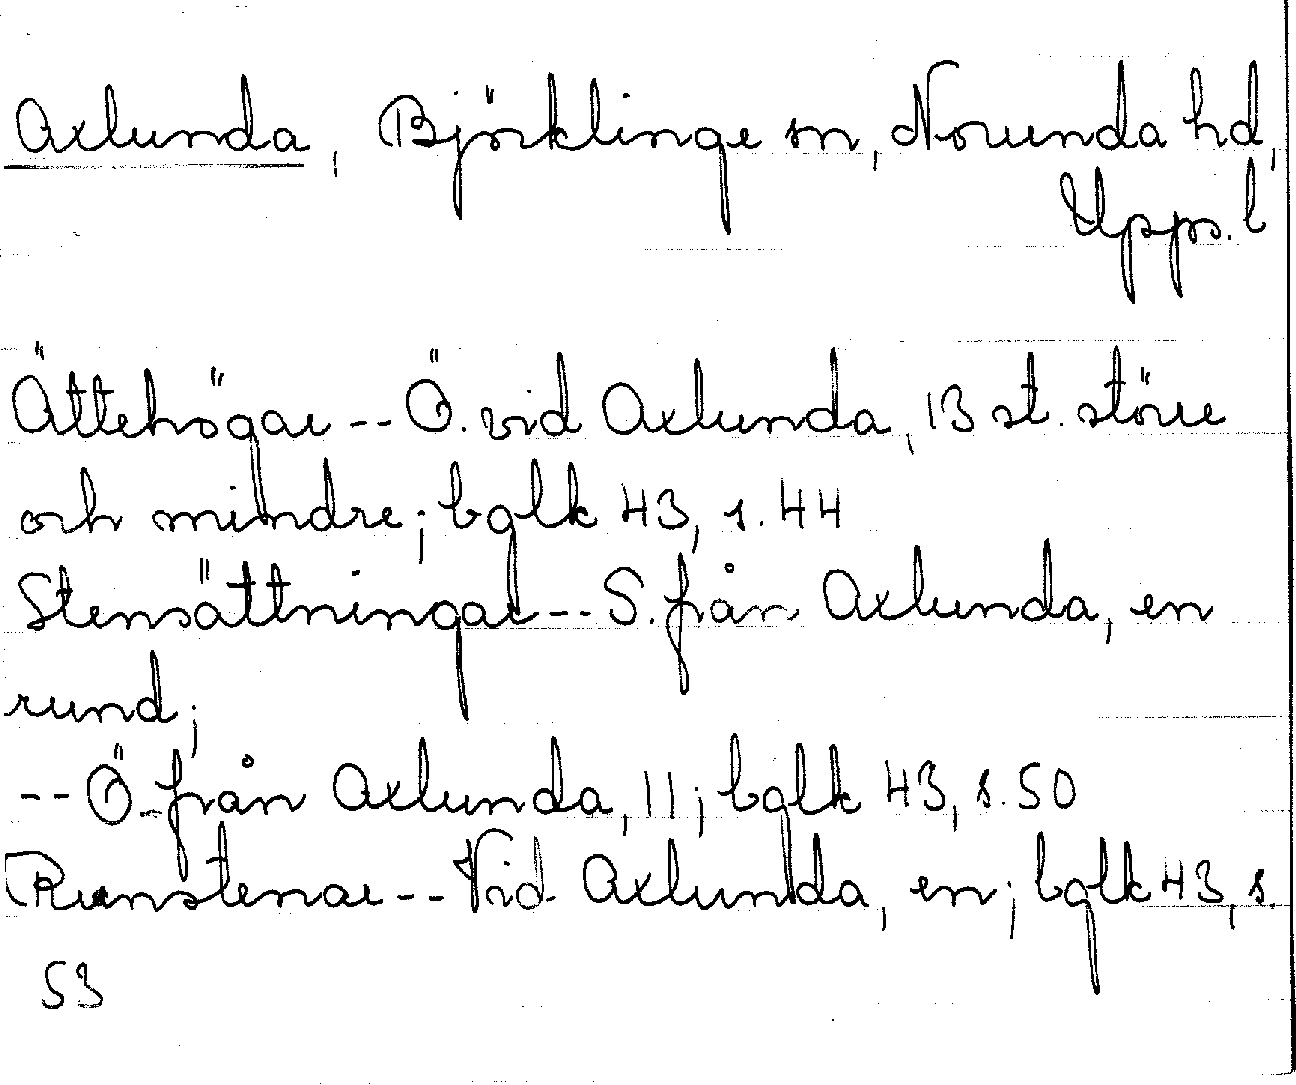 Axlunda, Björklinge sn, Norunda hd,
Upps. l
Ättehögar -- Ö. vid Axlunda, 13 st. större
och mindre; bglk 43, s. 44
Stensättningar -- S. från Axlunda, en
rund;
-- Ö. från Axlunda, 11; bglk 43, s. 50
Runstenar -- Vid Axlunda, en; bglk 43, s.
53